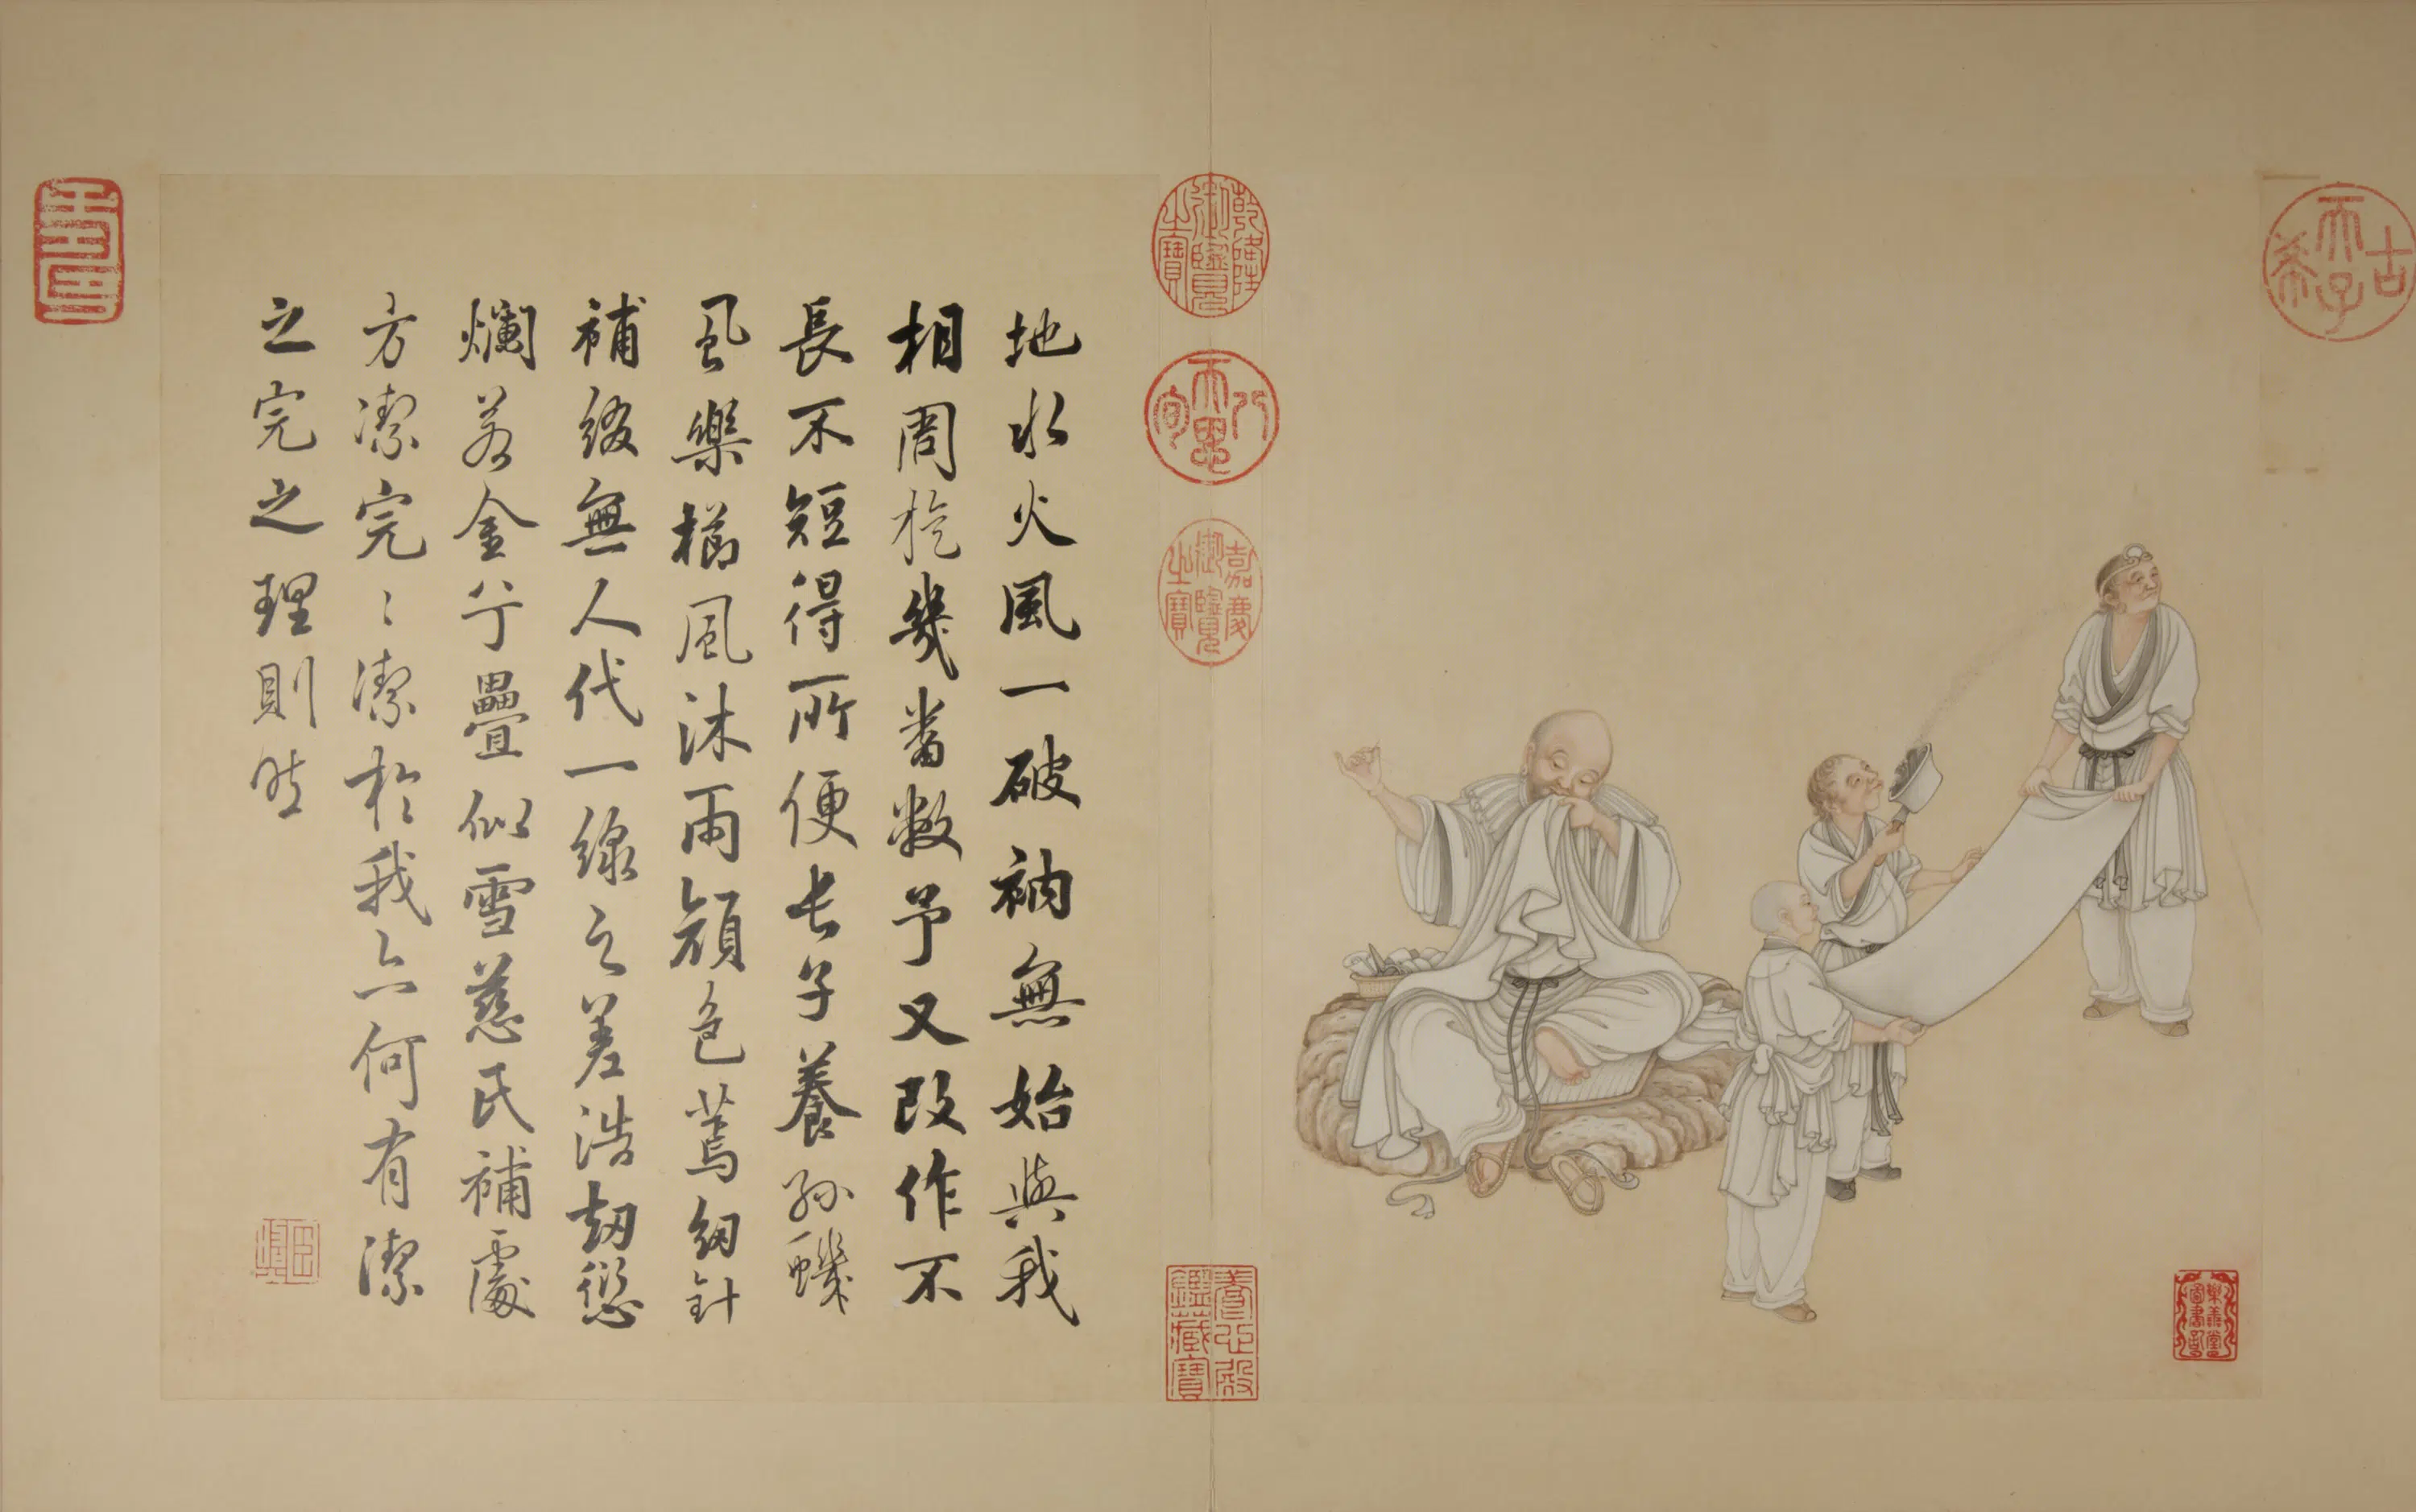 古希天子
樂善堂圖書記
乾隆御覽之寶
八旬天恩
嘉慶御覽之寶
養心殿鑑藏寶
地水火風一破衲無始與我
相周旋幾番敝予又改作不
長不短得所便長子養孫蟣
虱樂櫛風沐雨顏色蔫紉針
補綴無人代一線之差浩劫愆
爛若金兮疊似雪慈氏補處
方潔完〻潔於我亦何有潔
之完之理則然
壽